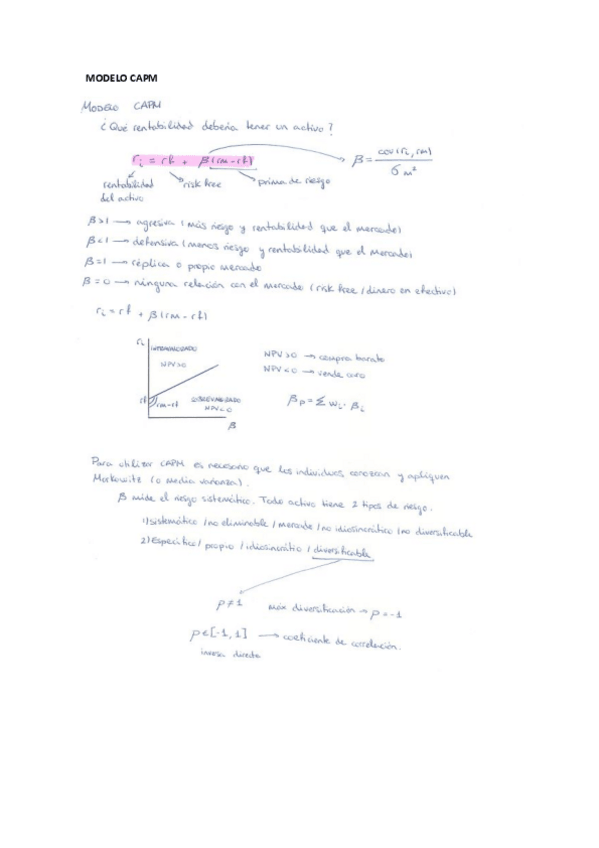 MODELO CAPM
MODELO CAPM
¿Qué rentabilidad debería tener un activo?
ri = rf + β(rm-rf) → β = cov(ri, rm) / σm²
rentabilidad del activo
risk free
prima de riesgo
β>1 → agresiva (más riesgo y rentabilidad que el mercado)
β<1 → defensiva (menos riesgo y rentabilidad que el mercado)
β=1 → réplica o propio mercado
β=0 → ninguna relación con el mercado (risk free / dinero en efectivo)
ri = rf + β(rm-rf)
ri
INFRAVALORADO
NPV>0
rf
rm-rf
SOBREVALORADO
NPV<0
β
NPV>0 → compra barato
NPV<0 → vende caro
βp = Σ wi · βi
Para utilizar CAPM es necesario que los individuos conozcan y apliquen
Markowitz (o media varianza).
β mide el riesgo sistemático. Todo activo tiene 2 tipos de riesgo.
1) sistemático / no eliminable / mercado / no idiosincrático / no diversificable
2) Específico / propio / idiosincrático / diversificable
p≠1 máx diversificación → p=-1
p∈[-1,1] → coeficiente de correlación.
inversa directa